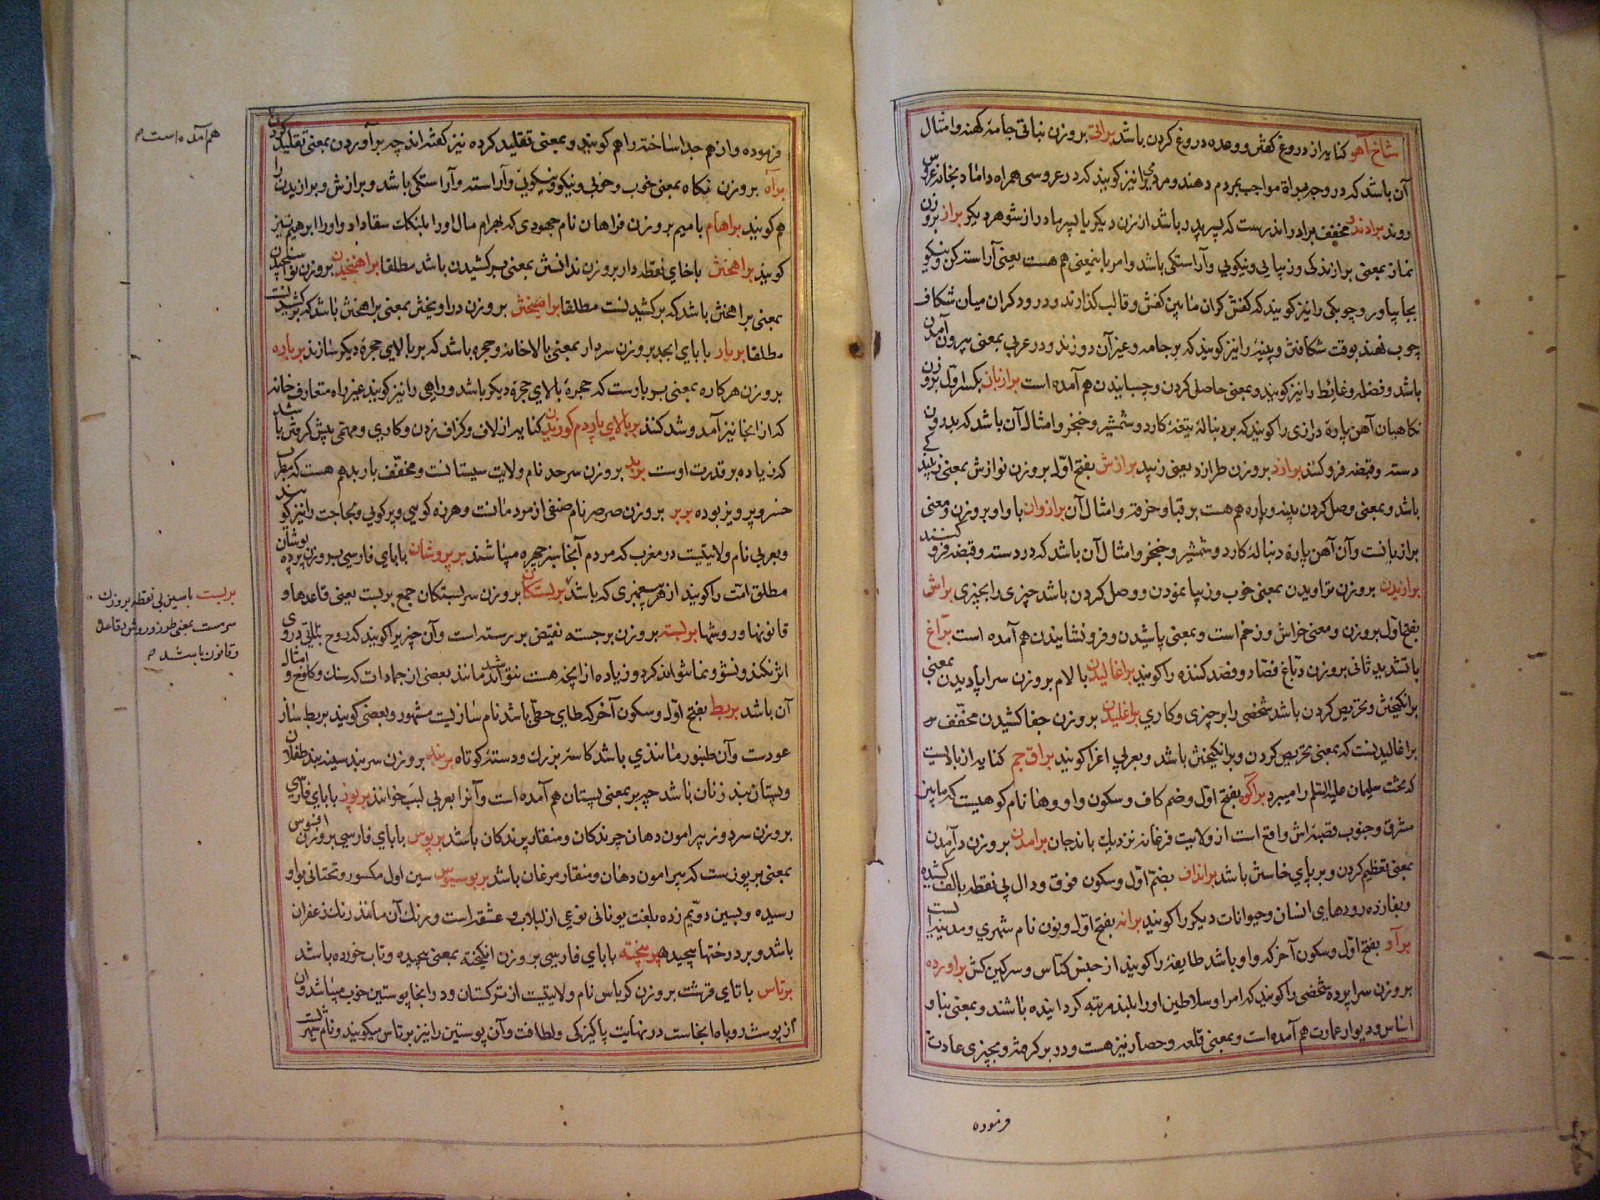 شاخ آهو کنایه از دروغ گفتن و وعده دروغ کردن باشد براتی بر وزن نباتی جامهٔ کهنه و امثال
آن باشد که در وجه براة مواجب بمردم دهند و مردمی را نیز گویند که در عروسی همراه داماد بخانه عروس
روند برادندر مخفف برادر اندرست که پسر پدر باشد از زن دیگر یا پسر مادر از شوهر دیگر براز بر وزن
نماز بمعنی برازندگی و زیبایی و نیکویی و آراستگی باشد و امر باینمعنی هم هست یعنی آراسته کن و نیکو
بجا بیاور و چوبکی را نیز گویند که کفش گران مابین کفش و قالب گذارند و درودگران میان شکاف
چوب نهند بوقت شکافتن و پینهٔ را نیز گویند که بر جامه و غیر آن دوزند و در عربی بمعنی بیرون آمدن
باشد و فضله و غائط را نیز گویند و بمعنی حاصل کردن و چسبانیدن هم آمده است برازبان بکسر اول بر وزن
نکاهبان آهن پارهٔ درازی را گویند که بر دنبالهٔ تیغهٔ کارد و شمشیر و خنجر و امثال آن باشد که بدرون
دسته و قبضه فرو کنند برازد بر وزن طرازد یعنی زیبد برازش بفتح اول بر وزن نوازش بمعنی زیبندگی
باشد و بمعنی وصل کردن پینه و پاره هم هست بر قبا و خرقه و امثال آن برازوان با واو بر وزن و معنی
برازبانست و آن آهن پارهٔ دنبالهٔ کارد و شمشیر و خنجر و امثال آن باشد که در دسته و قبضه فرو کنند
برازیدن بر وزن تراویدن بمعنی خوب و زیبا نمودن و وصل کردن باشد چیزی را بچیزی براش
بفتح اول بر وزن و معنی خراش و زخم است و بمعنی پاشیدن و فرو نشانیدن هم آمده است براغ
با تشدید ثانی بر وزن دباغ فصاد و فصد کننده را گویند براغالیدن با لام بر وزن سراپا دیدن بمعنی
برانگیختن و تحریص کردن باشد شخصی را بر چیزی و کاری براغلیدن بر وزن جفا کشیدن مخفف
براغالیدنست که بمعنی تحریص کردن و برانگیختن باشد و بعربی اغرا گویند براق جم کنایه از بادیست
که تخت سلیمان علیه السلام را میبرد براکوه بفتح اول و ضم کاف و سکون واو و ها نام کوهیست که مابین
مشرق و جنوب قصبهٔ اش واقع است از ولایت فرغانه نزدیک باندجان برامدن بر وزن درآمدن
بمعنی تعظیم کردن و بر پای خاستن باشد برانداف بضم اول و سکون فوق و دال بی نقطه بالف کشیده
و بفا زده رودهای انسان و حیوانات دیگر را گویند برانه بفتح اول و نون نام شهری و مدینه ایست
برآو بفتح اول و سکون آخر که واو باشد طایفهٔ را گویند از جنس کناس و سرکین کش براورده
بر وزن سراپرده شخصی را گویند که امرا و سلاطین او را بلند مرتبه گردانیده باشند و بمعنی بنا و
اساس و دیوار عمارت هم آمده است و بمعنی قلعه و حصار نیز هست و در بر گرفته و بچیزی عادت
فرموده
فرموده و از هم جدا ساخته را هم گویند و بمعنی تقلید کرده نیز گفته اند چه برآوردن بمعنی تقلید کردن
هم آمده است
براه بر وزن نکاه بمعنی خوب و خوبی و نیکو و نیکویی و آراسته و آراستگی باشد و برازش و برازیدن را
هم گویند براهام با میم بر وزن فراهان نام جهودی که بهرام مال او را بلنبک سقا داد و او را ابراهیم نیز
گویند براهختن با خای نقطه دار بر وزن ندانستن بمعنی برکشیدن باشد مطلقا براهنجیدن بر وزن نوا سنجیدن
بمعنی براهختن باشد که برکشیدنست مطلقا برآهیختن بر وزن درآویختن بمعنی براهختن باشد که برکشیدنست
مطلقا بربار با بای ابجد بر وزن سردار بمعنی بالاخانه و حجره باشد که بر بالای حجرهٔ دیگر سازند برباره
بر وزن هرکاره بمعنی بربارست که حجرهٔ بالای حجرهٔ دیگر باشد و راهی را نیز گویند غیر راه متعارف خانه
که از انجا نیز آمد و شد کنند بر بالای پاردم گوزیدن کنایه از لاف و گزاف زدن و کاری و مهمی پیش گرفتن باشد
که زیاده بر قدرت اوست بربد بر وزن سرحد نام ولایت سیستانست و مخفف باربد هم هست که مطرب
خسرو پرویز بوده بربر بر وزن صرصر نام صنفی از مردمانست و هرزه گویی و پرگویی و لجاجت را نیز گویند
و بعربی نام ولایتیست در مغرب که مردم آنجا سبز چهره میباشند بربروشان با بای فارسی بر وزن پرده پوشان
مطلق امّت را گویند از هر پیغمبری که باشد بربستگان بر وزن سربستگان جمع بربست یعنی قاعدها و
بربست با سین بی نقطه بر وزن
سرمست بمعنی طرز و روش و قاعده
و قانون باشد
قانونها و روشها بربسته بر وزن برجسته نقیض بررسته است و آن چیز را گویند که روح نباتی در وی
اثر نکند و نشو و نما نتواند کرد و زیاده از آنچه هست نتواند شد مانند بعضی از جمادات که سنک و کلوخ و امثال
آن باشد بربط بفتح اول و سکون آخر که طای حطی باشد نام سازیست مشهور و بعضی گویند بربط ساز
عودست و آن طنبور مانندی باشد کاسه بزرک و دسته کوتاه بربند بر وزن سربند سینه بند طفلان
و پستان بند زنان باشد چه بر بمعنی پستان هم آمده است و آنرا بعربی لبب خوانند برپوز با بای فارسی
بر وزن سردوز پیرامون دهان چرندگان و منقار پرندگان باشد برپوس با بای فارسی بر وزن افسوس
بمعنی برپوزست که پیرامون دهان و منقار مرغان باشد برپوسیوس سین اول مکسور و تحتانی بواو
رسیده و بسین دویم زده بلغت یونانی نوعی از لبلاب و عشقه است و رنک آن مانند رنک زعفران
باشد و بر درختها پیچیده برپیخته با بای فارسی بر وزن انگیخته بمعنی پیچیده و تاب خورده باشد
برتاس با تای قرشت بر وزن کرباس نام ولایتیست از ترکستان و در انجا پوستین خوب میباشد و آن
از پوست روباه انجاست در نهایت پاکیزگی و لطافت و آن پوستین را نیز برتاس میگویند و نام شهریست